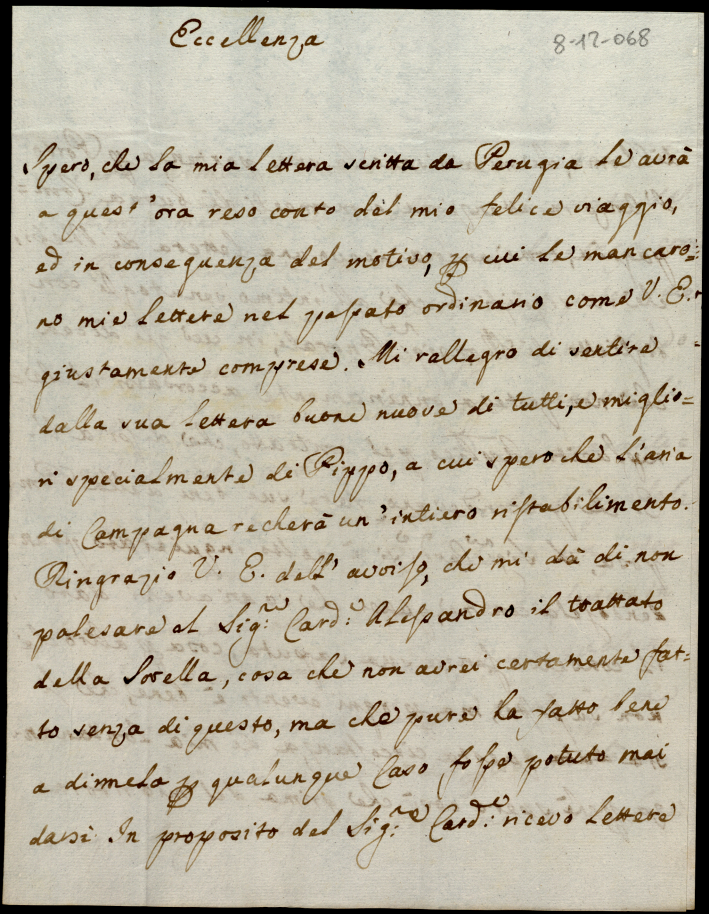 Eccellenza
8-12-068
Spero, che la mia lettera scritta da Perugia le avrà
a quest'ora reso conto del mio felice viaggio,
ed in conseguenza del motivo, p cui le mancaro=
no mie lettere nel passato ordinario come V. E.
giustamente comprese. Mi rallegro di sentire
dalla sua lettera buone nuove di tutti, e miglio=
ri specialmente di Pippo, a cui spero che l'aria
di Campagna recherà un' intiero ristabilimento.
Ringrazio V. E. dell' avviso, che mi dà di non
palesare al Sig:re Card:e Alessandro il trattato
della Sorella, cosa che non avrei certamente fat=
to senza di questo, ma che pure ha fatto bene
a dirmela p qualunque Caso fosse potuto mai
darsi. In proposito del Sig:re Card:e ricevo lettere